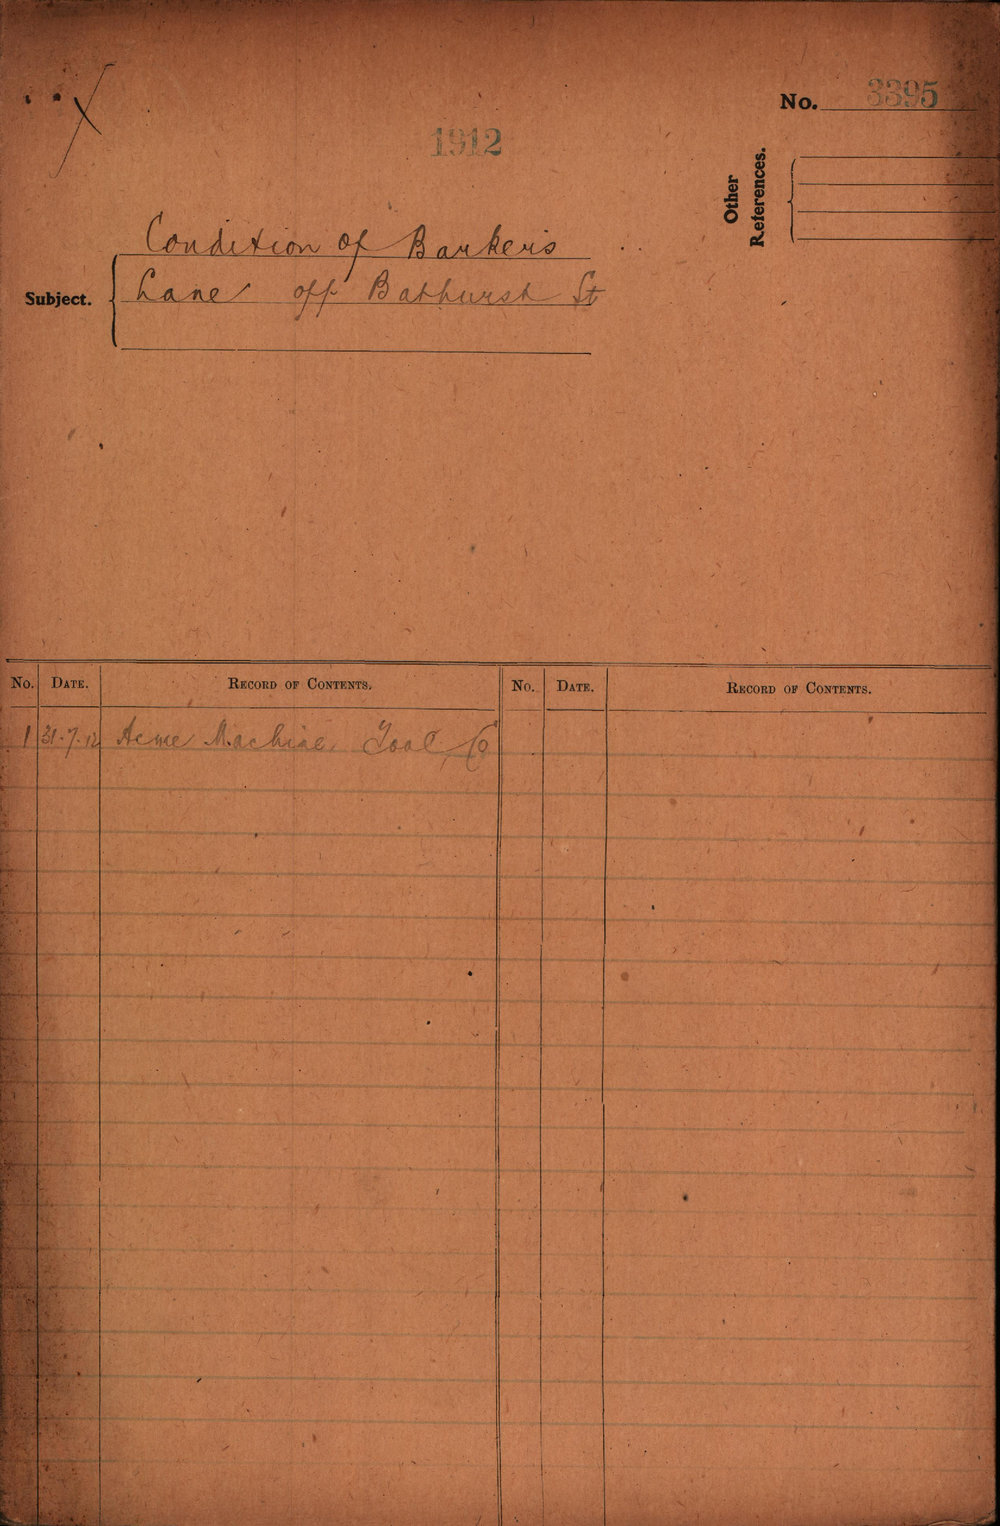 No. 3395
1912
Other
References.
Condition of Barker's
Subject.
Lane off Bathurst St
No. DATE. RECORD OF CONTENTS. No. DATE. RECORD OF CONTENTS.
1 31.7.12 Acme Machine Tool Co